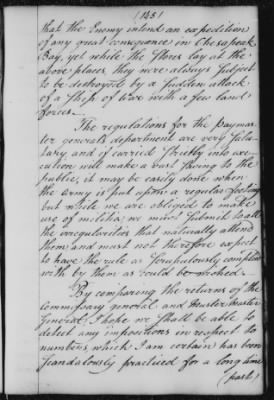 (145)
that the Enemy intend an expedition
of any great consequence in Chesapeak
Bay, yet while the stores lay at the
above places, they were always subject
to be destroyed by a sudden attack
of a Ship of War with a few land
forces.
The regulations for the paymas-
ter generals department are very salu-
tary and if carried strictly into exe-
cution will make a vast saving to the
public, it may be easily done when
the Army is put upon a regular footing
but while we are obliged to make
use of militia, we must submit to all
the irregularities that naturally attend
them and must not therefore expect
to have the rule as scrupulously complied
with by them as could be wished.
By comparing the returns of the
Commissary general and Muster Master
General I hope we shall be able to
detect any impositions in respect to
numbers, which I am certain has been
scandalously practised for a long time
(past)